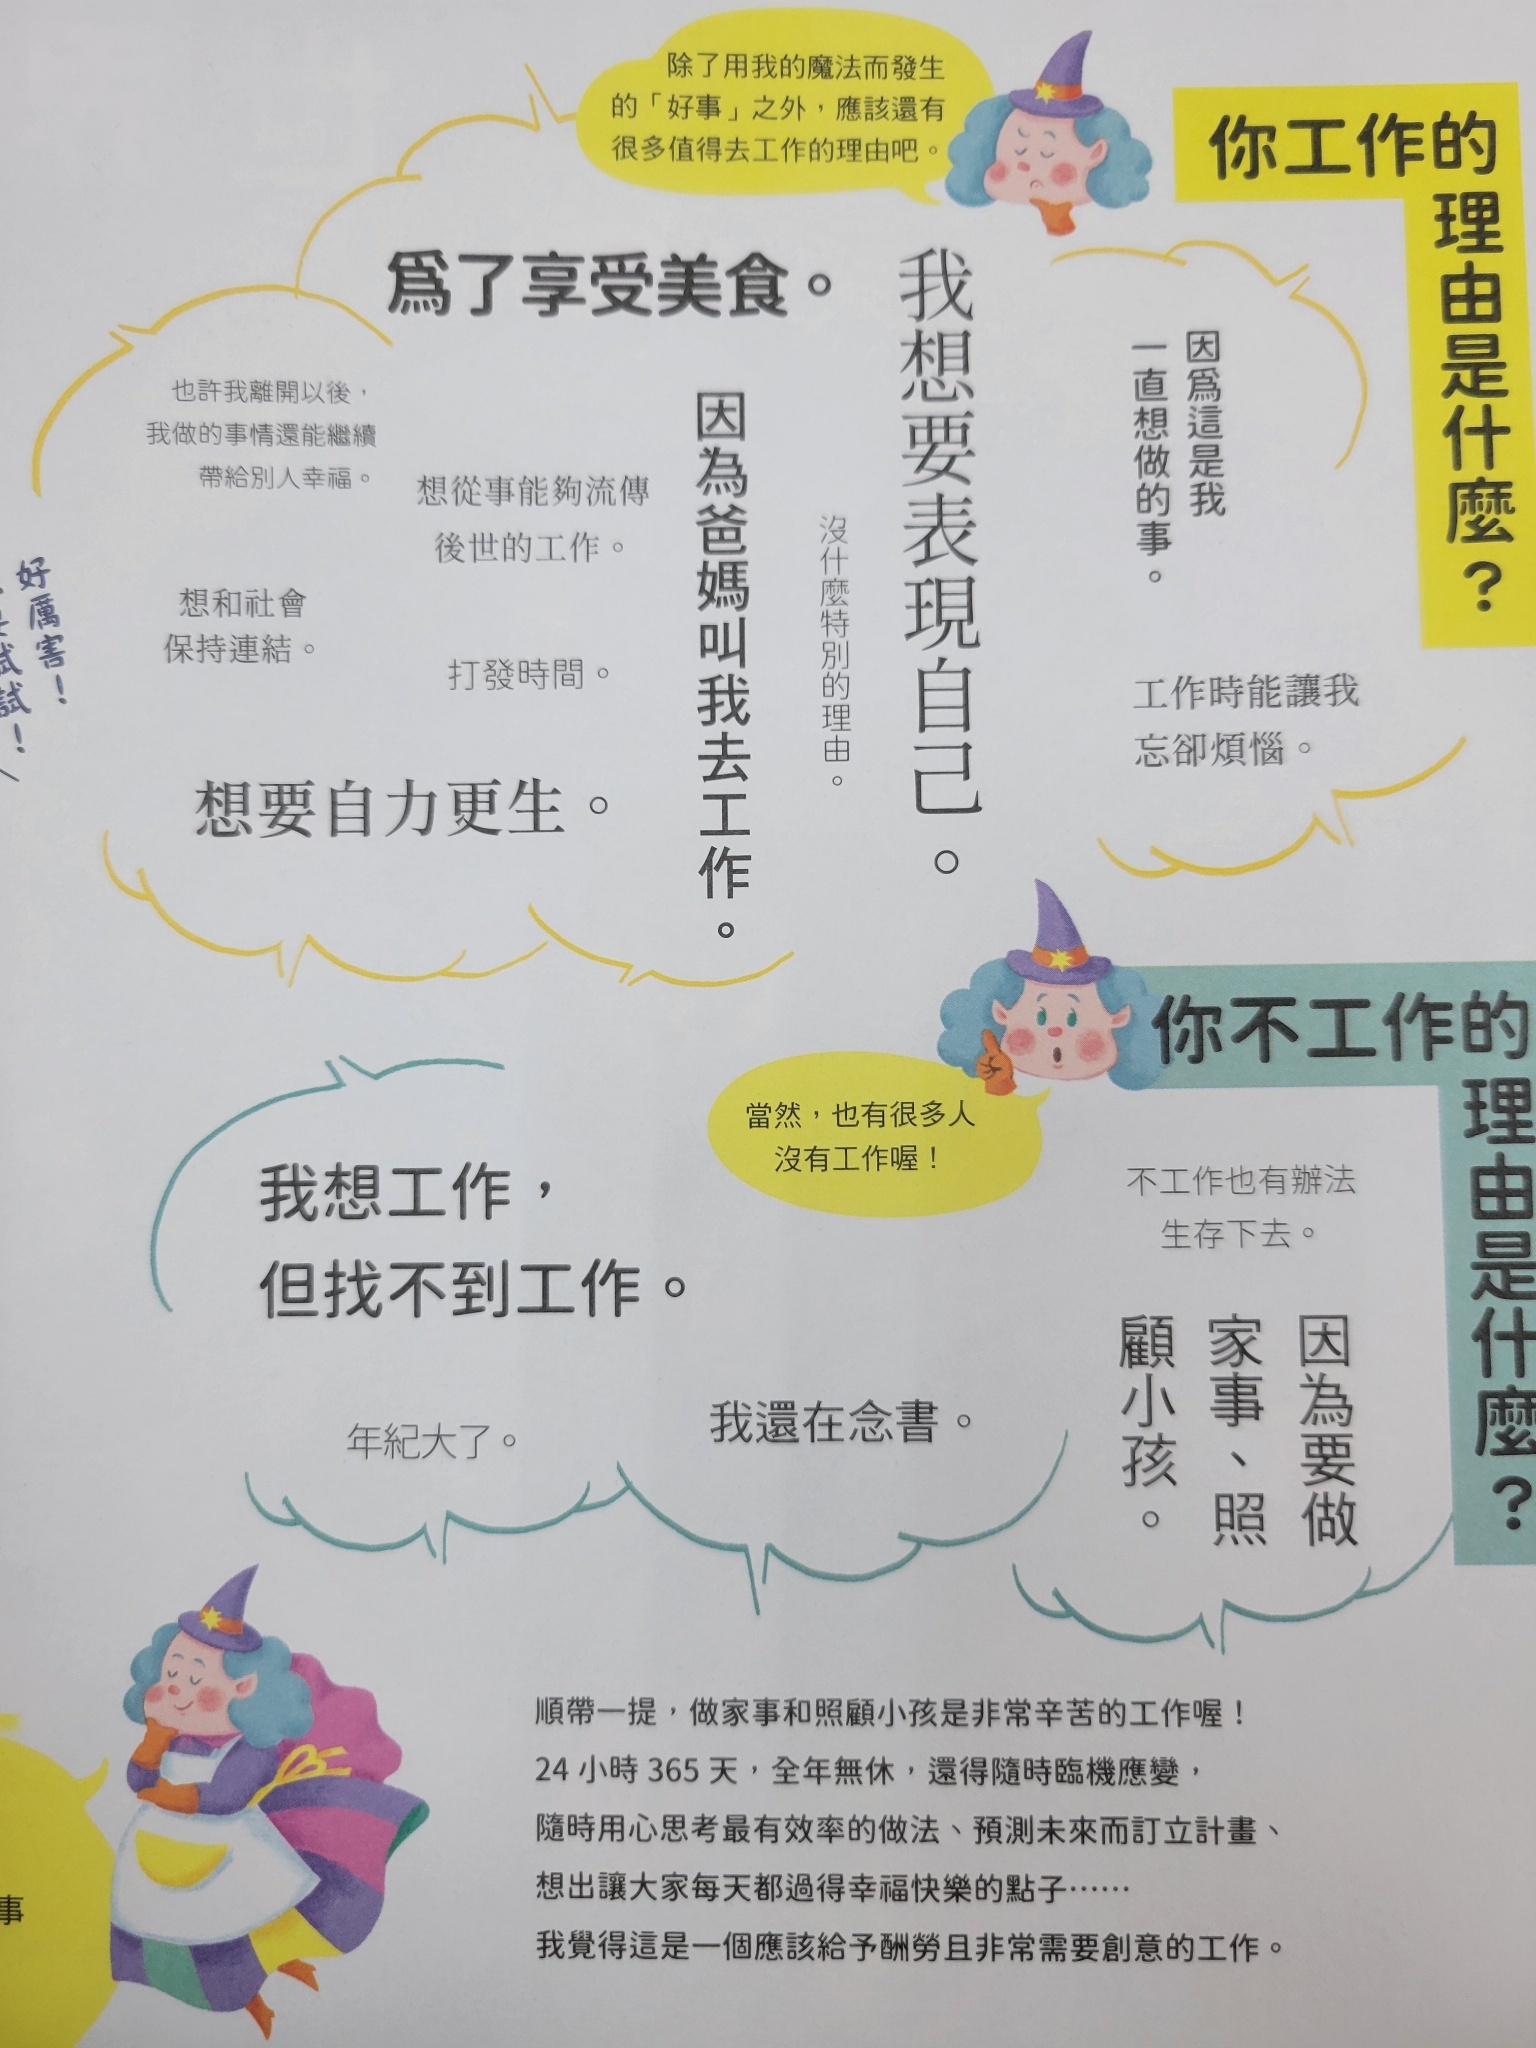 你工作的
理由是什麼？
除了用我的魔法而發生
的「好事」之外，應該還有
很多值得去工作的理由吧。
因為這是我
一直想做的事。
工作時能讓我
忘卻煩惱。
我想要表現自己。
沒什麼特別的理由。
為了享受美食。
因為爸媽叫我去工作。
想從事能夠流傳
後世的工作。
打發時間。
也許我離開以後，
我做的事情還能繼續
帶給別人幸福。
想和社會
保持連結。
想要自力更生。
好厲害！
試試！
你不工作的
理由是什麼？
當然，也有很多人
沒有工作喔！
不工作也有辦法
生存下去。
因為要做
家事、照
顧小孩。
我還在念書。
我想工作，
但找不到工作。
年紀大了。
順帶一提，做家事和照顧小孩是非常辛苦的工作喔！
24 小時 365 天，全年無休，還得隨時臨機應變，
隨時用心思考最有效率的做法、預測未來而訂立計畫、
想出讓大家每天都過得幸福快樂的點子……
我覺得這是一個應該給予酬勞且非常需要創意的工作。
事